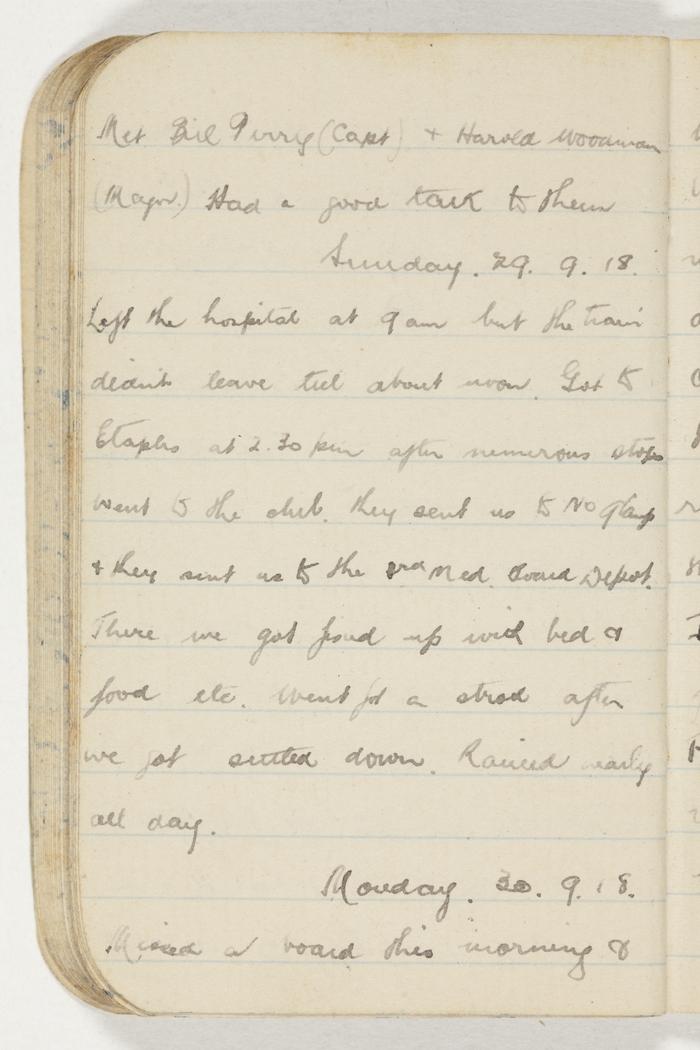 Met Bill Perry (Capt) & Harold Woodman
(Major.) Had a good talk to them
Sunday. 29. 9. 18.
Left the hospital at 9 am but the train
didn't leave till about noon. Got to
Etaples at 2.30 pm after numerous stops
went to the club. they sent us to No
& they sent us to the 3rd Med. Board Depot.
There we got fixed up with bed &
food etc. Went for a stroll after
we got settled down. Rained nearly
all day.
Monday. 30. 9. 18.
Missed a board this morning &